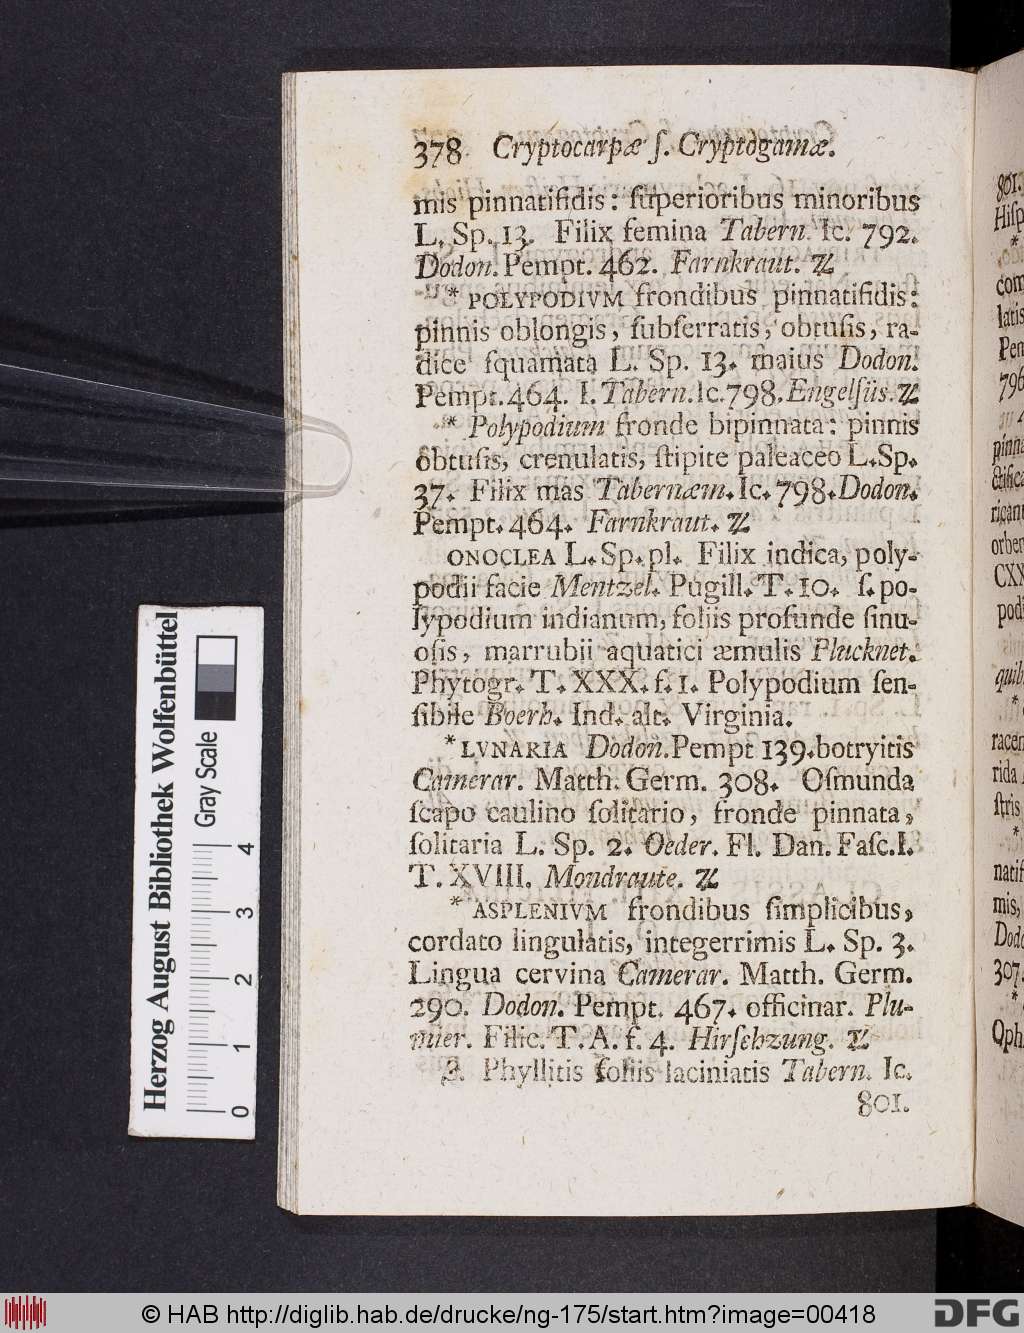 378 Cryptocarpæ ſ. Cryptogamæ.
mis pinnatifidis: ſuperioribus minoribus
L. Sp. 13. Filix femina Tabern. Ic. 792.
Dodon. Pempt. 462. Farnkraut. ♃
* POLYPODIVM frondibus pinnatifidis:
pinnis oblongis, ſubſerratis, obtuſis, ra-
dice ſquamata L. Sp. 13. maius Dodon.
Pempt. 464. I. Tabern. Ic. 798. Engelſüs. ♃
* Polypodium fronde bipinnata: pinnis
obtuſis, crenulatis, ſtipite paleaceo L. Sp.
37. Filix mas Tabernæm. Ic. 798. Dodon.
Pempt. 464. Farnkraut. ♃
ONOCLEA L. Sp. pl. Filix indica, poly-
podii facie Mentzel. Pugill. T. 10. ſ. po-
lypodium indianum, foliis profunde ſinu-
oſis, marrubii aquatici æmulis Plucknet.
Phytogr. T. XXX. f. 1. Polypodium ſen-
ſibile Boerh. Ind. alt. Virginia.
* LVNARIA Dodon. Pempt 139. botryitis
Camerar. Matth. Germ. 308. Oſmunda
ſcapo caulino ſolitario, fronde pinnata,
ſolitaria L. Sp. 2. Oeder. Fl. Dan. Faſc. I.
T. XVIII. Mondraute. ♃
* ASPLENIVM frondibus ſimplicibus,
cordato lingulatis, integerrimis L. Sp. 3.
Lingua cervina Camerar. Matth. Germ.
290. Dodon. Pempt. 467. officinar. Plu-
mier. Filic. T. A. f. 4. Hirſchzung. ♃
β. Phyllitis foliis laciniatis Tabern. Ic.
801.
801.
Hiſp
*
com
latis
Pem
796
pinna
ctifica
rican
orber
CXX
pod
quib
*
racem
rida
ſtris
*
natif
mis,
Dodo
307.
*
Oph
Herzog August Bibliothek Wolfenbüttel
Gray Scale
0 1 2 3 4
© HAB http://diglib.hab.de/drucke/ng-175/start.htm?image=00418
DFG